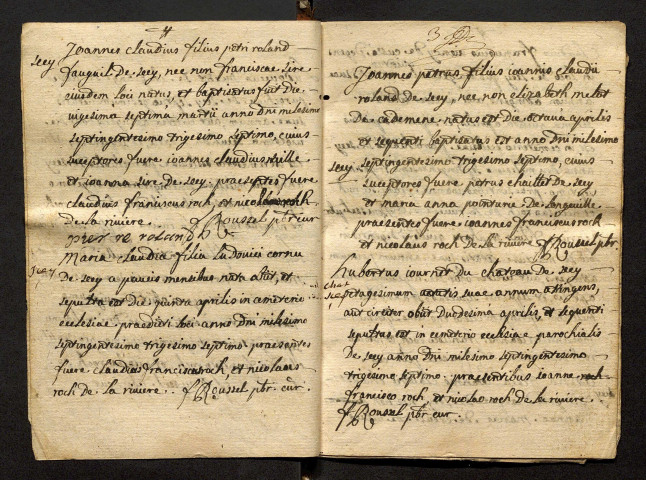 Scey
Joannes claudius filius petri roland
fauguil de scey, nec non franciscae sire
eiusdem loci natus, et baptisatus fuit die
vigesima septima martii anno dni milesimo
septingentesimo trigesimo septimo, cuius
susceptores fuere ioannes claudius
et ioanna sire de scey. praesentes fuere
claudius franciscus roch, et nicolaus roch
de la riviere. f Roussel pbr cur
pier re roland
Maria claudia filia Ludovici cornu
de scey a paucis mensibus nata obiit, et
sepulta est die quinta aprilis in cemeterio
ecclesiae praedicti loci anno dni milesimo
septingentesimo trigesimo septimo praesentes
fuere claudius franciscus roch, et nicolaus
roch de la riviere. f Roussel pbr cur.
3
Joannes petrus filius ioannis claudii
roland de scey, nec non elizabeth
de cademene, natus est die octava aprilis
et sequenti baptisatus est anno dni milesimo
scey
septingentesimo trigesimo septimo, cuius
susceptores fuere petrus de scey
et maria anna de
praesentes fuere ioannes franciscus roch
et nicolaus roch de la riviere f Roussel pbr.
hubertus iournet du chateau de scey
aetatis suae annum attingens,
aut circiter obiit duodesima aprilis, et sequenti
sepultus est in cemeterio ecclesiae parochialis
de scey anno dni milesimo septingentesimo
trigesimo septimo. praesentibus ioanne
francisco roch, et nicolao roch de la riviere.
f Roussel pbr cur.